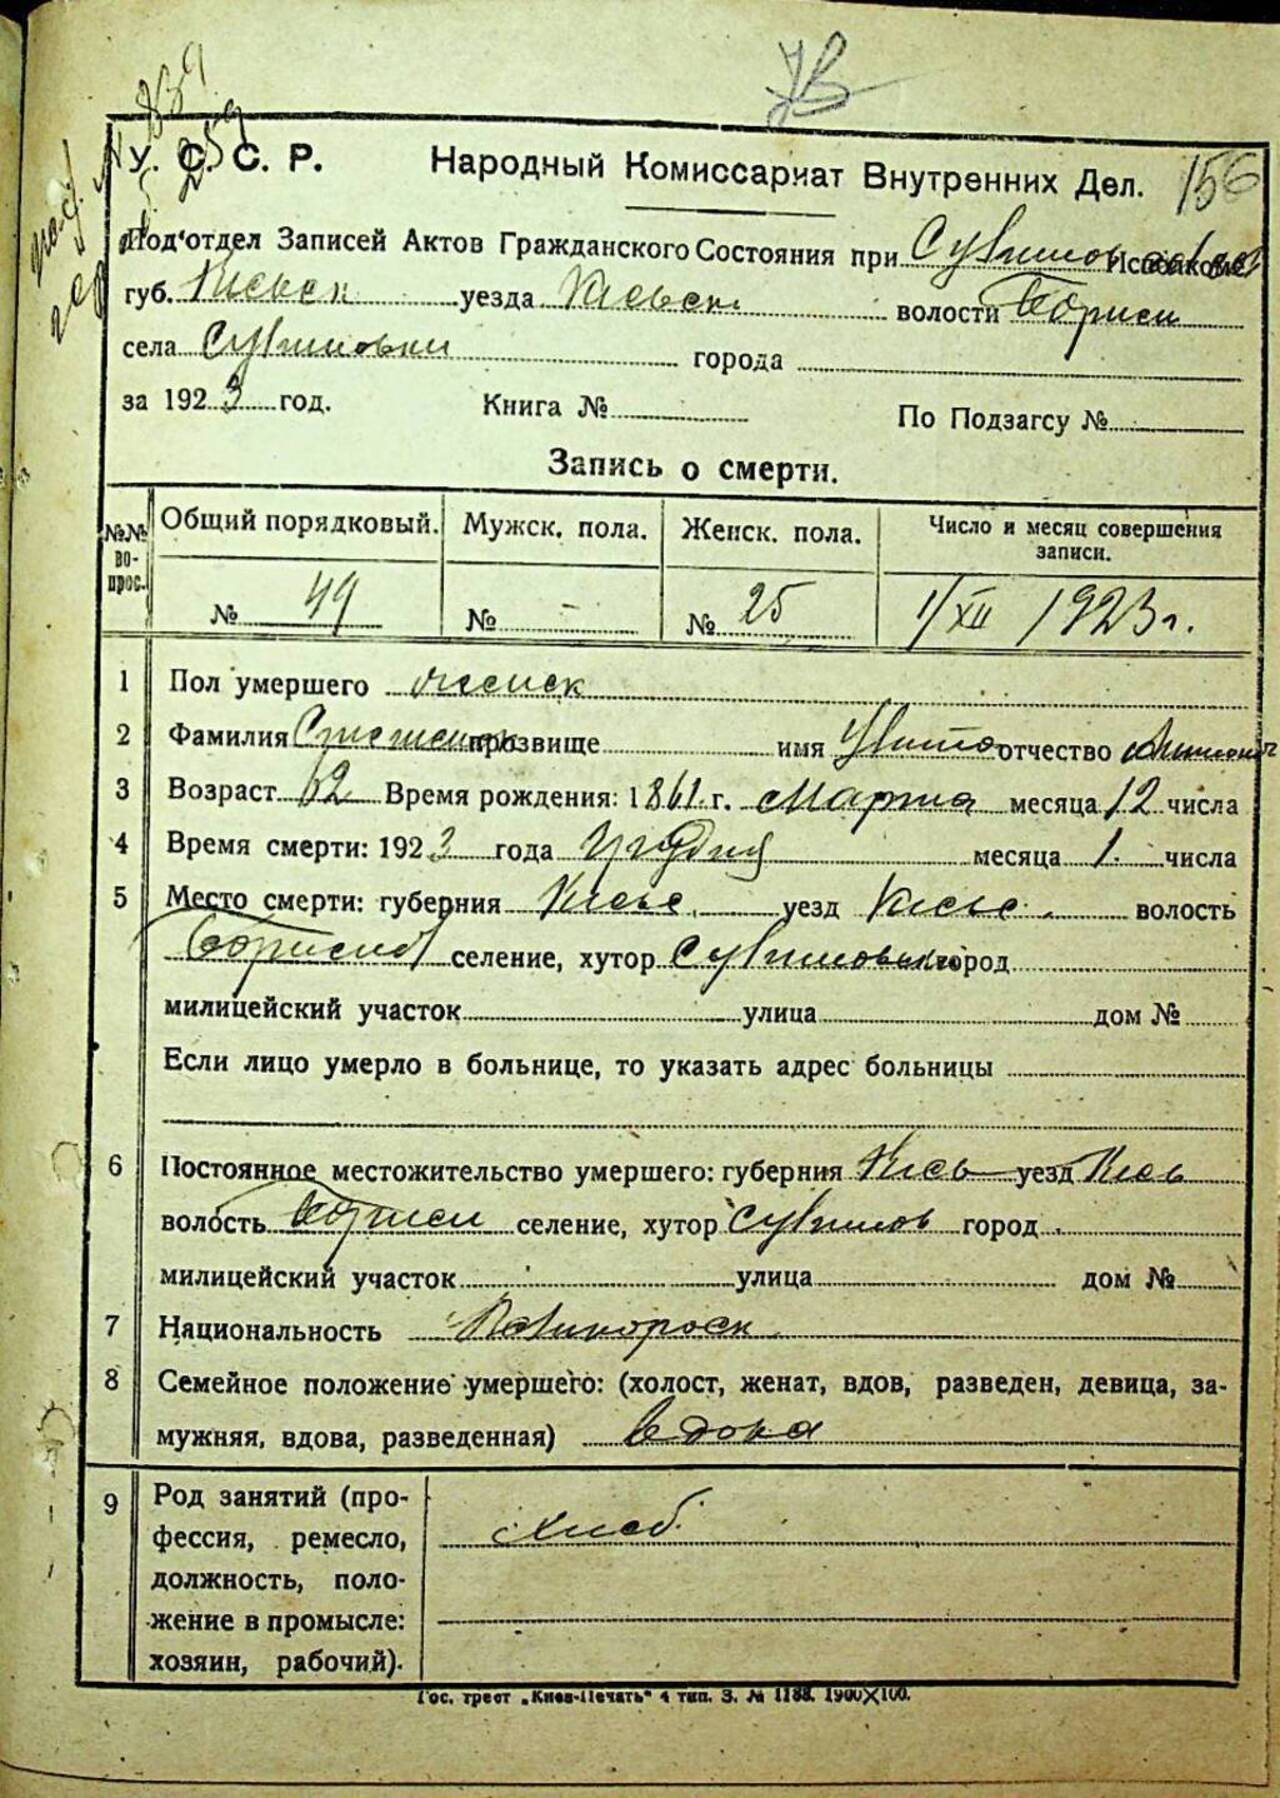 156
У. С. С. Р. Народный Комиссариат Внутренних Дел.
Под'отдел Записей Актов Гражданского Состояния при Исполкоме
губ. Киевск уезда Киевск. волости Борисп
села Сулимовки города
за 1923 год. Книга № По Подзагсу №
Запись о смерти.
№№ вопрос. Общий порядковый. Мужск. пола. Женск. пола. Число и месяц совершения записи.
№ 49 № - № 25 1/XII 1923 г.
1 Пол умершего женск
2 Фамилия прозвище имя отчество
3 Возраст 62 Время рождения: 1861 г. Марта месяца 12 числа
4 Время смерти: 1923 года месяца 1. числа
5 Место смерти: губерния Киевс. уезд Киевс. волость
селение, хутор Сулимовка город
милицейский участок улица дом №
Если лицо умерло в больнице, то указать адрес больницы
6 Постоянное местожительство умершего: губерния Киев уезд Киев
волость Борисп селение, хутор Сулимов город
милицейский участок улица дом №
7 Национальность
8 Семейное положение умершего: (холост, женат, вдов, разведен, девица, за-
мужняя, вдова, разведенная) вдова
9 Род занятий (про-
фессия, ремесло, Хлеб.
должность, поло-
жение в промысле:
хозяин, рабочий).
Гос. трест „Киев-Печать“ 4 тип. З. № 1188. 1900×100.